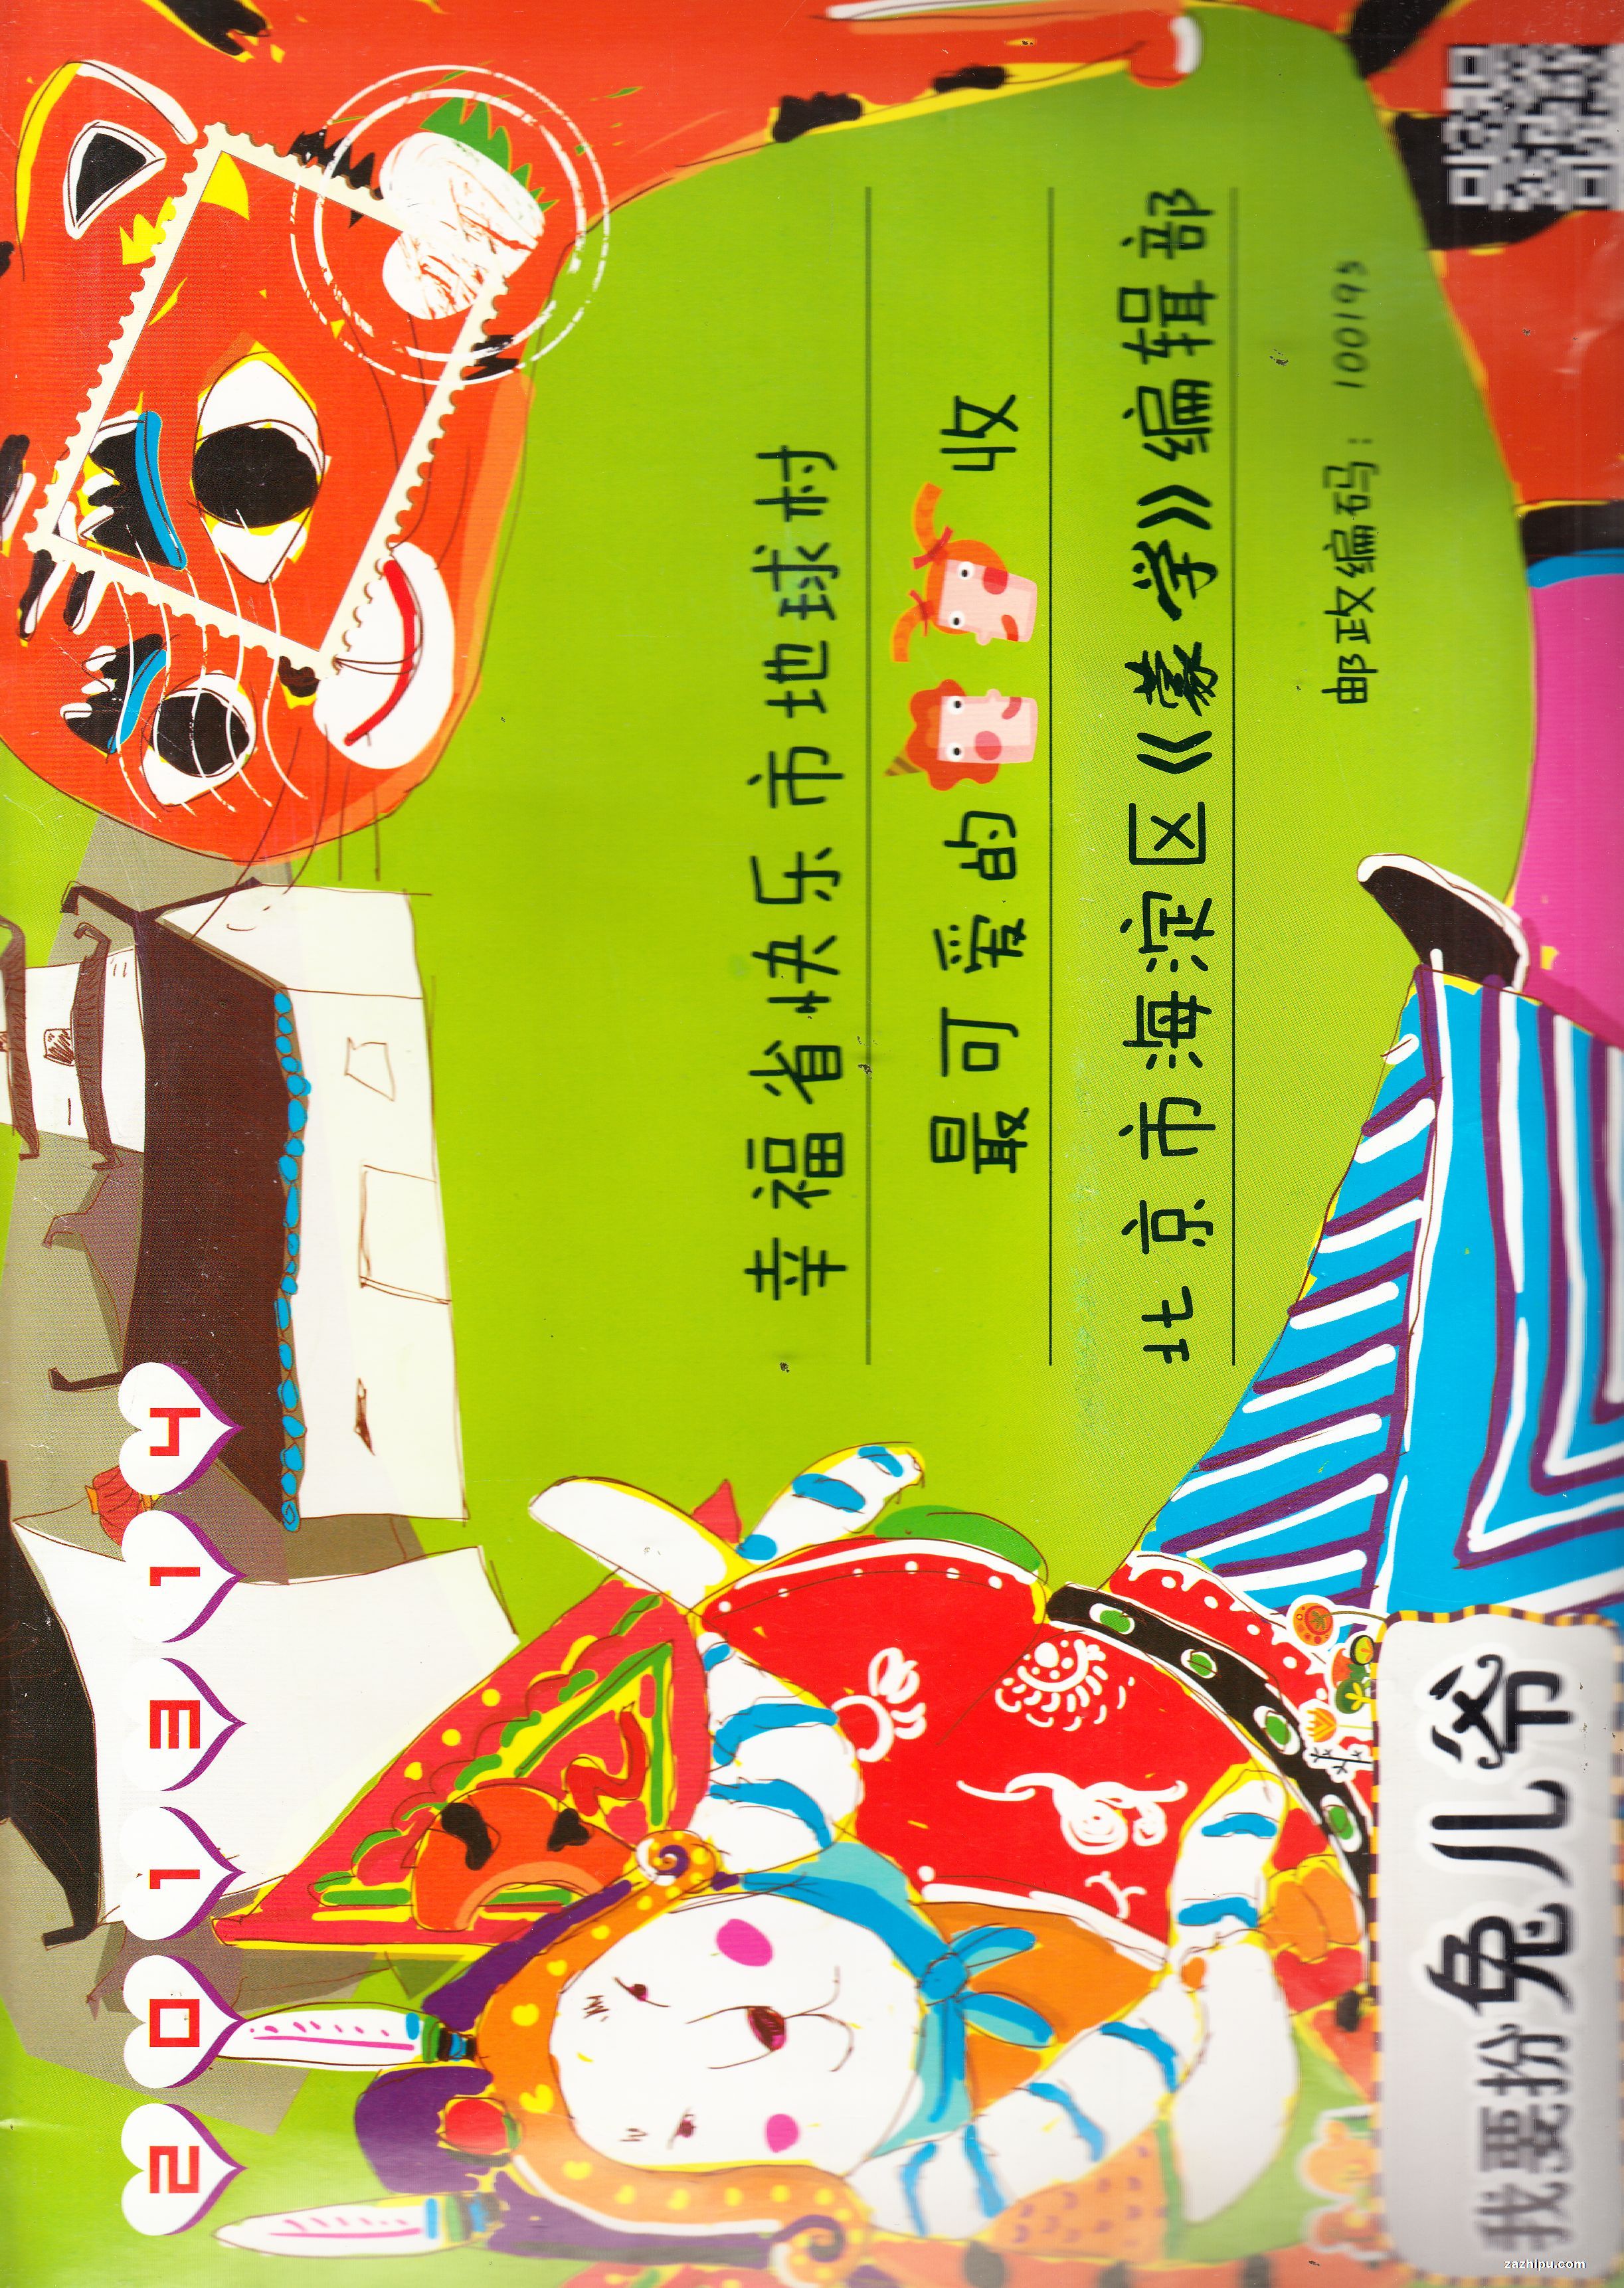 201314
幸福省快乐市地球村
最可爱的 收
北京市海淀区《蒙学》编辑部
邮政编码：100195
我要扮兔儿爷
zazhipu.com